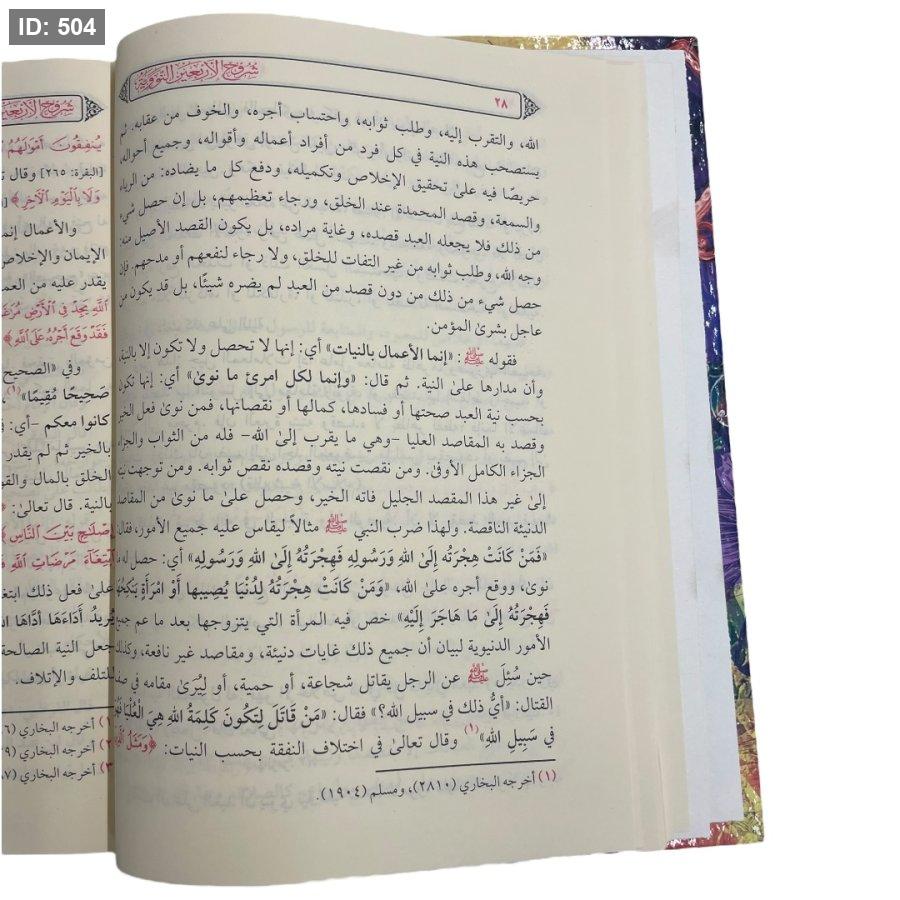 ID: 504
شروح الأربعين النووية
٢٨
الله، والتقرب إليه، وطلب ثوابه، واحتساب أجره، والخوف من عقابه. ثم
يستصحب هذه النية في كل فرد من أفراد أعماله وأقواله، وجميع أحواله،
حريصًا فيه علىٰ تحقيق الإخلاص وتكميله، ودفع كل ما يضاده: من الرياء
والسمعة، وقصد المحمدة عند الخلق، ورجاء تعظيمهم، بل إن حصل شيء
من ذلك فلا يجعله العبد قصده، وغاية مراده، بل يكون القصد الأصيل منه:
وجه الله، وطلب ثوابه من غير التفات للخلق، ولا رجاء لنفعهم أو مدحهم. فإن
حصل شيء من ذلك من دون قصد من العبد لم يضره شيئًا، بل قد يكون من
عاجل بشرىٰ المؤمن.
فقوله ﷺ: «إنما الأعمال بالنيات» أي: إنها لا تحصل ولا تكون إلا بالنية،
وأن مدارها علىٰ النية. ثم قال: «وإنما لكل امرئ ما نوىٰ» أي: إنها تكون
بحسب نية العبد صحتها أو فسادها، كمالها أو نقصانها، فمن نوىٰ فعل الخير
وقصد به المقاصد العليا -وهي ما يقرب إلىٰ الله- فله من الثواب والجزاء
الجزاء الكامل الأوفىٰ. ومن نقصت نيته وقصده نقص ثوابه. ومن توجهت نيته
إلىٰ غير هذا المقصد الجليل فاته الخير، وحصل علىٰ ما نوىٰ من المقاصد
الدنيئة الناقصة. ولهذا ضرب النبي ﷺ مثالاً ليقاس عليه جميع الأمور، فقال:
«فَمَنْ كَانَتْ هِجْرَتُه إِلَىٰ اللهِ وَرَسُولِهِ فَهِجْرَتُهُ إِلَىٰ اللهِ وَرَسُولِهِ» أي: حصل له ما
نوىٰ، ووقع أجره علىٰ الله، «وَمَنْ كَانَتْ هِجْرَتُهُ لِدُنْيَا يُصِيبها أَوْ امْرَأَةٍ يَنْكِحُهَا
فَهِجْرَتُهُ إِلَىٰ مَا هَاجَرَ إِلَيْهِ» خص فيه المرأة التي يتزوجها بعد ما عم جميع
الأمور الدنيوية لبيان أن جميع ذلك غايات دنيئة، ومقاصد غير نافعة، وكذلك
حين سُئِلَ ﷺ عن الرجل يقاتل شجاعة، أو حمية، أو لِيُرَىٰ مقامه في صف
القتال: «أيُّ ذلك في سبيل الله؟» فقال: «مَنْ قَاتَلَ لِتَكُونَ كَلِمَةُ اللهِ هِيَ الْعُلْيَا فَهُوَ
فِي سَبِيلِ اللهِ»(١) وقال تعالىٰ في اختلاف النفقة بحسب النيات: ﴿وَمَثَلُ
(١) أخرجه البخاري (٢٨١٠)، ومسلم (١٩٠٤).
شروح الأربعين
يُنفِقُونَ أَمْوَالَهُمُ
[البقرة: ٢٦٥] وقال
وَلَا بِالْيَوْمِ الْآخِرِ﴾
والأعمال إنما
الإيمان والإخلاص
يقدر عليه من العمل
اللَّهِ يَجِدْ فِي الْأَرْضِ
فَقَدْ وَقَعَ أَجْرُهُ عَلَى اللَّهِ﴾
وفي «الصحيح
صَحِيحًا مُقِيمًا»(١)
كانوا معكم -أي:
بالخير ثم لم يقدر
الخلق بالمال والقول
بالنية. قال تعالىٰ:
إِصْلَاحٍ بَيْنَ النَّاسِ
ابْتِغَاءَ مَرْضَاتِ اللَّهِ
علىٰ فعل ذلك
يُرِيدُ أَدَاءَهَا أَدَّاهَا
جعل النية الصالحة
للتلف والإتلاف.
أخرجه البخاري
أخرجه البخاري
أخرجه البخاري